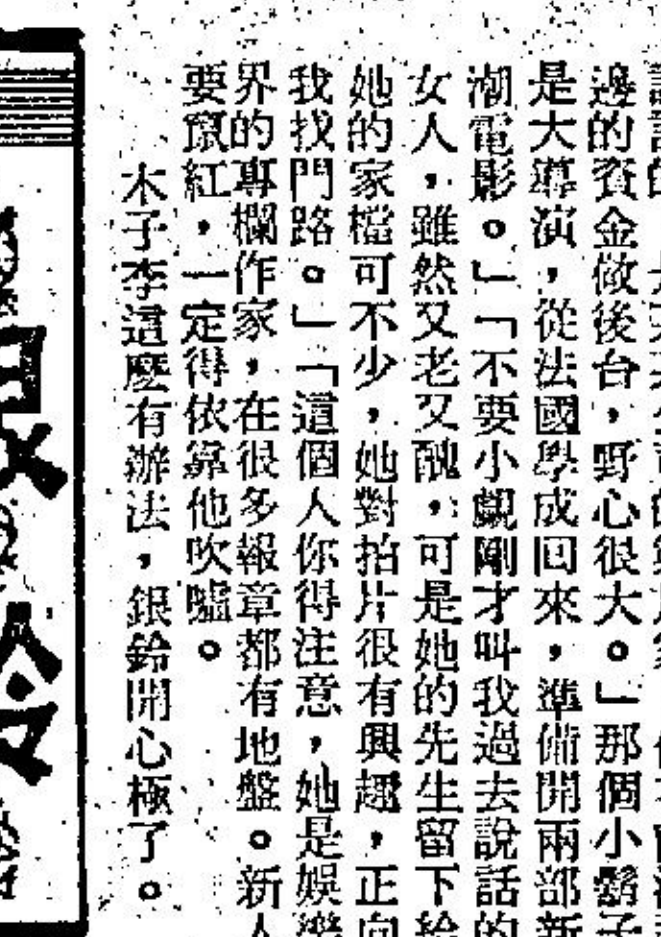 邊的資金做後台，野心很大。」那個小鬍子
是大導演，從法國學成回來，準備開兩部新
潮電影。」「不要小覷剛才叫我過去說話的
女人，雖然又老又醜，可是她的先生留下給
她的家檔可不少，她對拍片很有興趣，正向
我找門路。」「這個人你得注意，她是娛樂
界的專欄作家，在很多報章都有地盤。新人
要竄紅，一定得依靠他吹噓。
木子李這麼有辦法，銀鈴開心極了。
銀鈴